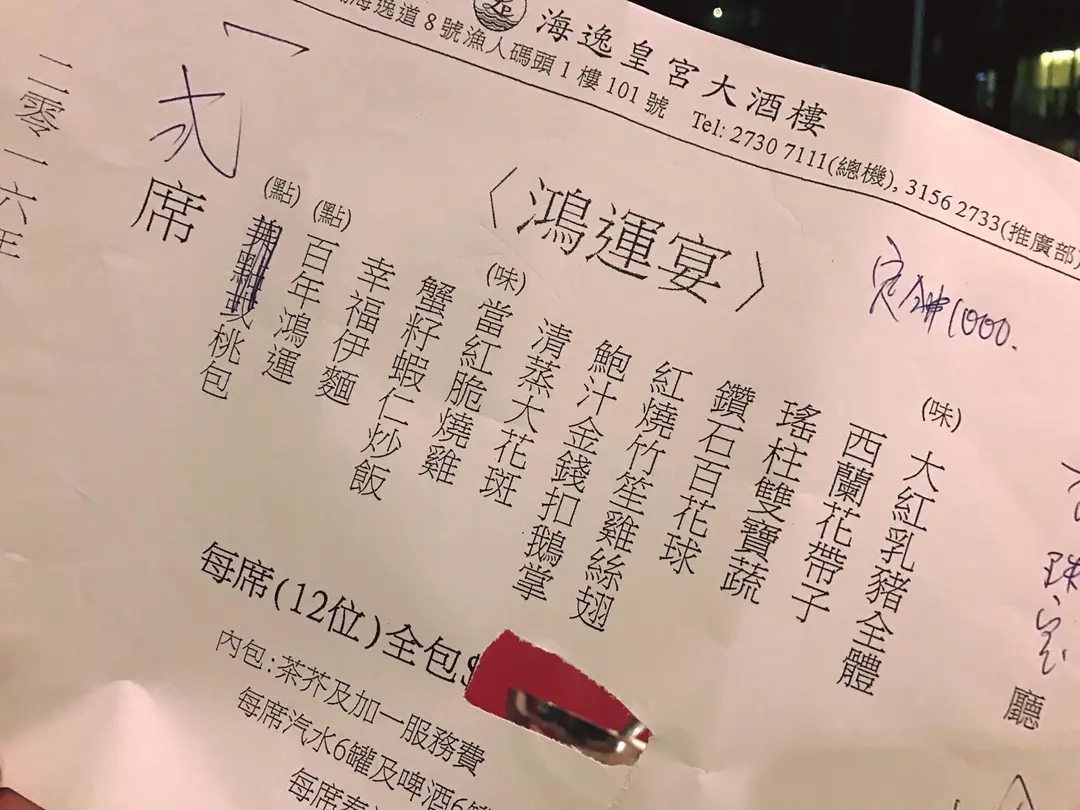 海逸皇宮大酒樓
海逸道8號漁人碼頭1樓101號 Tel: 2730 7111(總機), 3156 2733(推廣部)
〈鴻運宴〉
定金1000.
(味)大紅乳豬全體
西蘭花帶子
瑤柱雙寶蔬
鑽石百花球
紅燒竹笙雞絲翅
鮑汁金錢扣鵝掌
清蒸大花斑
(味)當紅脆燒雞
蟹籽蝦仁炒飯
幸福伊麵
(點)百年鴻運
(點)桃包
席
二零一六年
廳
每席(12位)全包$
內包:茶芥及加一服務費
每席汽水6罐及啤酒6
每席